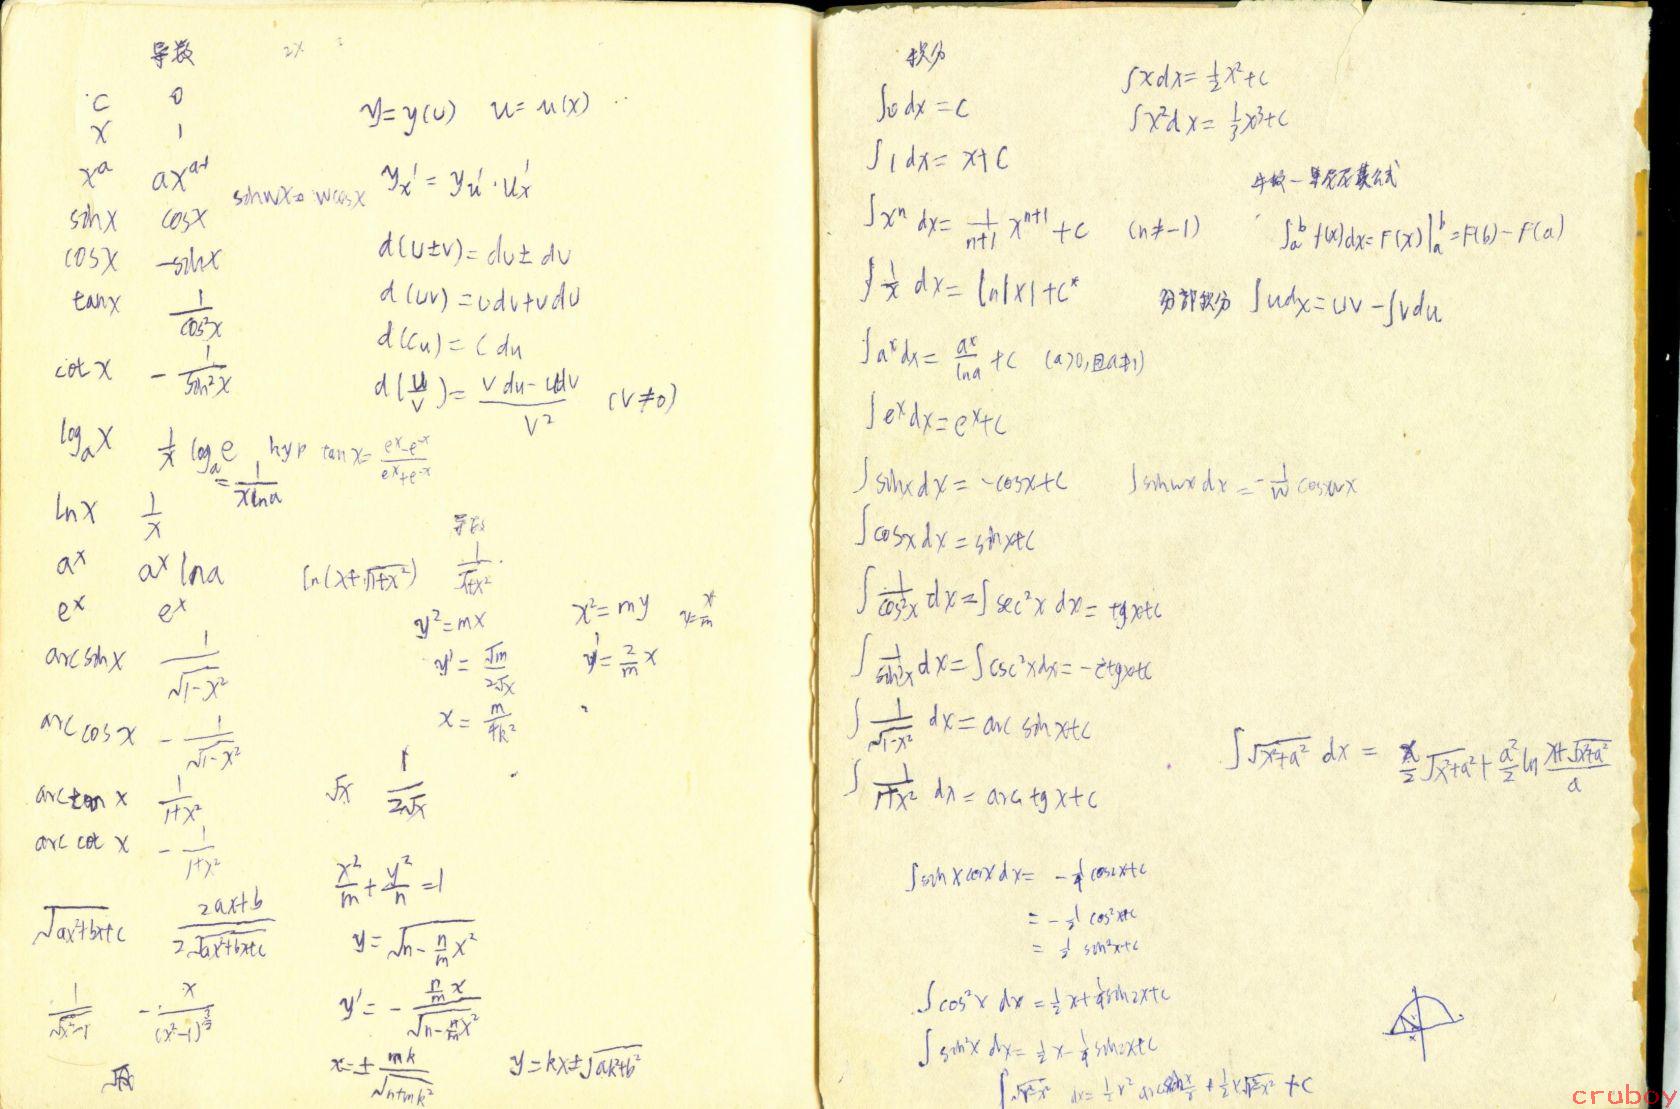 导数
2x
c 0
x 1
xᵃ axᵃ⁻¹
sinwx= wcosx
sinx cosx
cosx -sinx
tanx 1/cos²x
cotx -1/sin²x
logₐx 1/x logₐe = 1/(xlna)
hyp tanx = (eˣ-e⁻ˣ)/(eˣ+e⁻ˣ)
lnx 1/x
aˣ aˣlna
eˣ eˣ
arcsinx 1/√(1-x²)
arccosx -1/√(1-x²)
arctanx 1/(1+x²)
arccotx -1/(1+x²)
√(ax²+bx+c) (2ax+b)/(2√(ax²+bx+c))
1/√(x²-1) -x/(x²-1)^(3/2)
y=y(u) u=u(x)
yₓ' = yᵤ'·uₓ'
d(u±v)=du±dv
d(uv)=udv+vdu
d(Cu)=Cdu
d(u/v)=(vdu-udv)/v² (v≠0)
导数
ln(x+√(1+x²)) 1/√(1+x²)
y²=mx x²=my
y'=√m/(2√x) y'=(2/m)x
x=m/(4k²)
√x 1/(2√x)
x²/m+y²/n=1
y=√(n-(n/m)x²)
y'=-((n/m)x)/√(n-(n/m)x²)
x=±mk/√(n+mk²) y=kx±√(ak²+b²)
积分
∫0dx=C
∫1dx=x+C
∫xⁿdx=1/(n+1) xⁿ⁺¹+C (n≠-1)
∫1/x dx=ln|x|+C
∫aˣdx=aˣ/lna+C (a>0,且a≠1)
∫eˣdx=eˣ+C
∫sinxdx=-cosx+C ∫sinwxdx=-1/w coswx
∫cosxdx=sinx+C
∫1/cos²x dx=∫sec²xdx=tgx+C
∫1/sin²x dx=∫csc²xdx=-ctgx+C
∫1/√(1-x²) dx=arc sinx+C
∫1/(1+x²) dx=arc tgx+C
∫xdx=½x²+C
∫x²dx=⅓x³+C
牛顿-莱布尼茨公式
∫ₐᵇf(x)dx=F(x)|ₐᵇ=F(b)-F(a)
分部积分 ∫udx=uv-∫vdu
∫√(x²+a²) dx = x/2 √(x²+a²)+a²/2 ln (x+√(x²+a²))/a
∫sinxcosxdx= -¼cos2x+C
=-½cos²x+C
=½sin²x+C
∫cos²x dx=½x+¼sin2x+C
∫sin²x dx=½x-¼sin2x+C
∫√(r²-x²) dx=½r² arcsin x/r+½x√(r²-x²)+C
cruboy